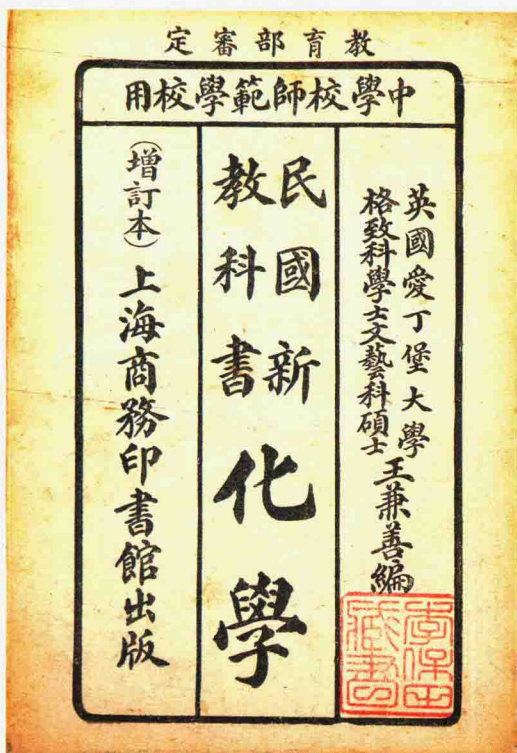 教育部審定
中學校師範學校用
英國愛丁堡大學
格致科學士文藝科碩士
王兼善編
民國新
教科書
化學
（增訂本）上海商務印書館出版